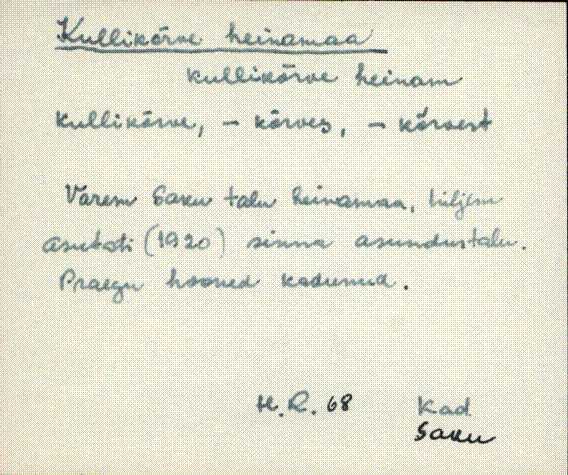 Kullikõrve heinamaa
kullikõrve heinam
kullikõrve, - kõrves, - kõrvest
Varem Saku talu heinamaa, hiljem
asutati (1920) sinna asundustalu.
Praegu hooned kadunud.
H.R. 68 Kad
Saku